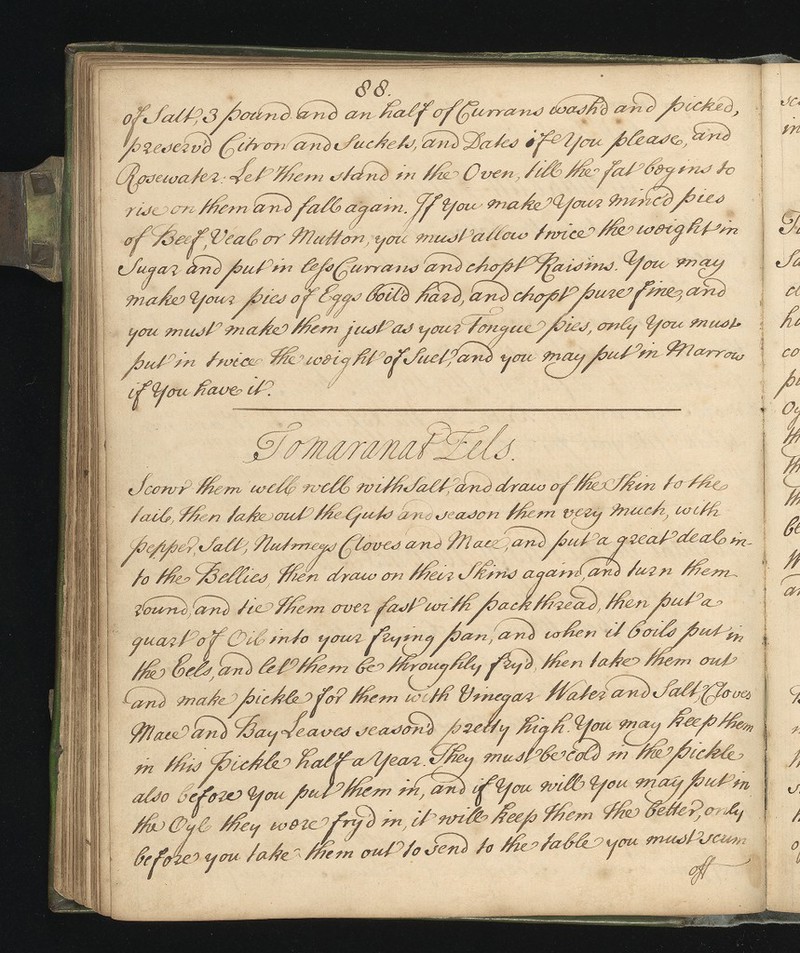 88.
of Salt, 3 pound and an half of Currans wash'd and picked,
preserv'd Citron and Suckets, and Dates if You please, and
Rosewater. Let them stand in the Oven, till the fat begins to
rise on them and fall again. If You make Your minc'd pies
of Beef, Veal or Mutton, you must allow twice the weight in
Sugar and put in less Currans and chopt Raisins. You may
make Your pies of Eggs boil'd hard, and chopt pure fine, and
you must make them just as your Tongue pies, only You must
put in twice the weight of Suet, and you may put in Marrow
if You have it.
Eels.
Scowr them well well with Salt, and draw of the Skin to the
tail, then take out the Guts and season them very much, with
pepper, Salt, Nutmegs Cloves and Mace, and put a great deal in-
to the Bellies, then draw on their Skins again, and turn them
round, and tie them over fast with packthread, then put a
quart of Oil into your frying pan, and when it boils put in
the Eels, and let them be throughly fry'd, then take them out
and make pickle for them with Vinegar Water and Salt, Cloves
Mace and Bay Leaves season'd pretty high. You may keep them
in this Pickle half a Year. They must be cold in the pickle
also before you put them in, and if You will You may put in
the Oyl they were fry'd in, it will keep them the better, only
before you take them out to send to the table you must scum
off